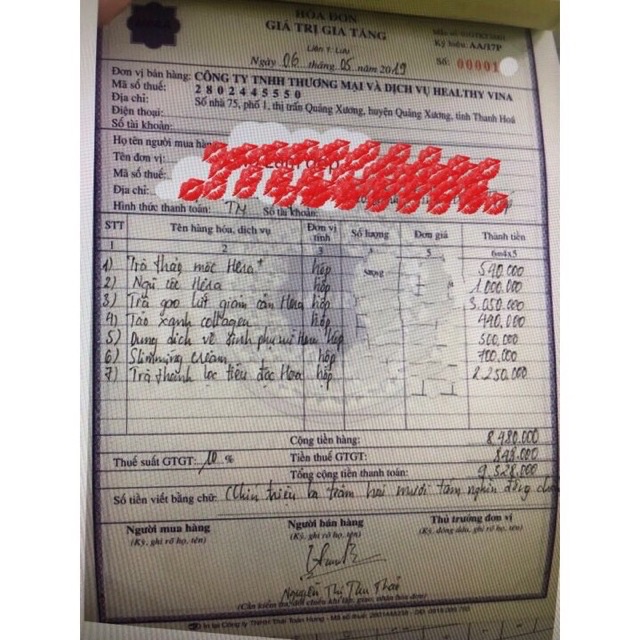 HÓA ĐƠN
GIÁ TRỊ GIA TĂNG
Liên 1: Lưu
Ký hiệu: AA/17P
Ngày 06 tháng 05 năm 2019
Số: 00001
Đơn vị bán hàng: CÔNG TY TNHH THƯƠNG MẠI VÀ DỊCH VỤ HEALTHY VINA
Mã số thuế: 2802445550
Địa chỉ: Số nhà 75, phố 1, thị trấn Quảng Xương, huyện Quảng Xương, tỉnh Thanh Hoá
Điện thoại:
Số tài khoản:
Họ tên người mua hàng
Tên đơn vị:
Mã số thuế:
Địa chỉ:
Hình thức thanh toán: TM Số tài khoản:
STT Tên hàng hóa, dịch vụ Đơn vị tính Số lượng Đơn giá Thành tiền
1 2 3 4 5 6=4x5
1) Trà thảo mộc Hera+ hộp 540.000
2) Ngũ cốc Hera hộp 1.000.000
3) Trà gạo lứt giảm cân Hera hộp 3.050.000
4) Tảo xanh collagen hộp 440.000
5) Dung dịch vệ sinh phụ nữ Hera hộp 500.000
6) Slimming cream hộp 700.000
7) Trà thanh lọc tiêu độc Hera hộp 2.250.000
Cộng tiền hàng: 8.480.000
Thuế suất GTGT: 10 % Tiền thuế GTGT: 848.000
Tổng cộng tiền thanh toán: 9.328.000
Số tiền viết bằng chữ: (Chín triệu ba trăm hai mươi tám nghìn đồng
Người mua hàng Người bán hàng Thủ trưởng đơn vị
(Ký, ghi rõ họ, tên) (Ký, ghi rõ họ, tên) (Ký, đóng dấu, ghi rõ họ, tên)
Nguyễn Thị Thu Thảo